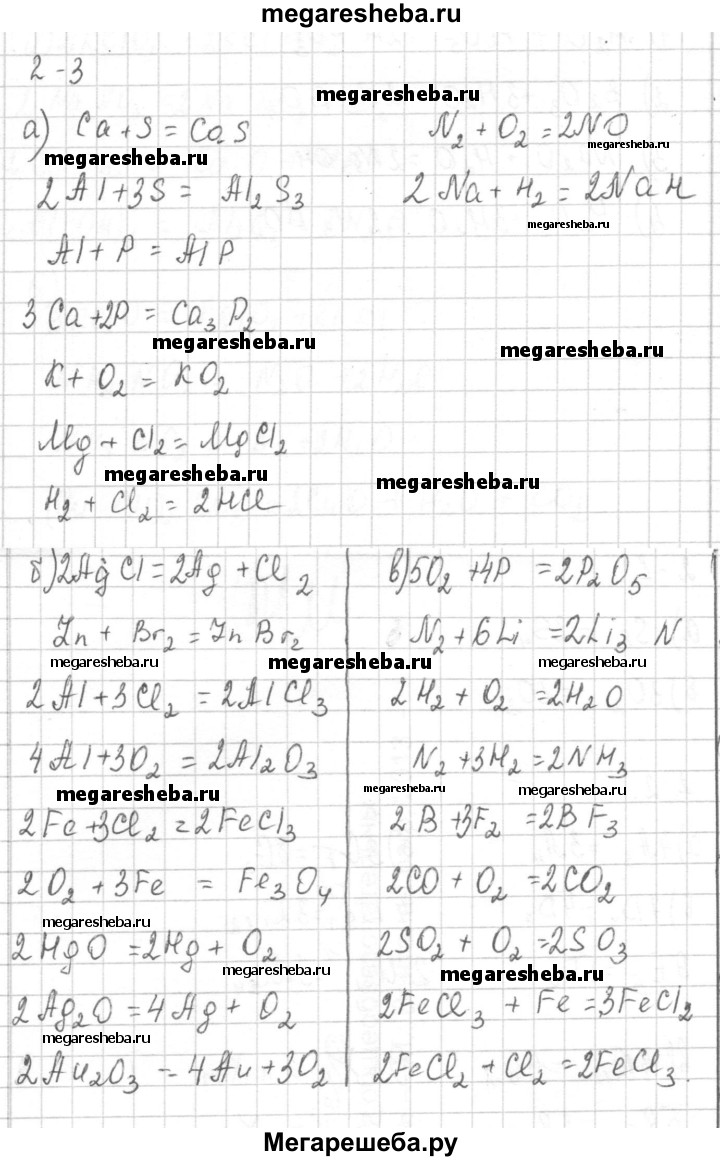 megaresheba.ru
2-3
а) Ca + S = CaS
N₂ + O₂ = 2NO
megaresheba.ru
megaresheba.ru
2Al + 3S = Al₂S₃
2Na + H₂ = 2NaH
megaresheba.ru
Al + P = AlP
3Ca + 2P = Ca₃P₂
megaresheba.ru
megaresheba.ru
K + O₂ = KO₂
Mg + Cl₂ = MgCl₂
megaresheba.ru
megaresheba.ru
H₂ + Cl₂ = 2HCl
б) 2AgCl = 2Ag + Cl₂
Zn + Br₂ = ZnBr₂
megaresheba.ru
megaresheba.ru
2Al + 3Cl₂ = 2AlCl₃
4Al + 3O₂ = 2Al₂O₃
megaresheba.ru
2Fe + 3Cl₂ = 2FeCl₃
2O₂ + 3Fe = Fe₃O₄
megaresheba.ru
2HgO = 2Hg + O₂
megaresheba.ru
2Ag₂O = 4Ag + O₂
megaresheba.ru
2Au₂O₃ = 4Au + 3O₂
в) 5O₂ + 4P = 2P₂O₅
N₂ + 6Li = 2Li₃N
megaresheba.ru
2H₂ + O₂ = 2H₂O
N₂ + 3H₂ = 2NH₃
megaresheba.ru
megaresheba.ru
2B + 3F₂ = 2BF₃
2CO + O₂ = 2CO₂
2SO₂ + O₂ = 2SO₃
megaresheba.ru
2FeCl₃ + Fe = 3FeCl₂
2FeCl₂ + Cl₂ = 2FeCl₃.
Мегарешеба.ру